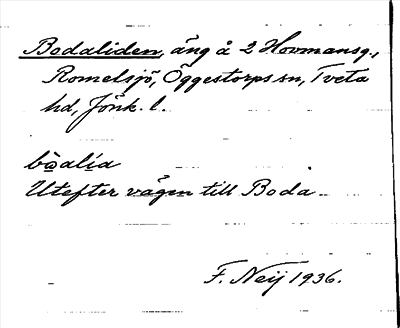 Bodaliden, äng å 2 Hovmansg.,
Romelsjö, Öggestorps sn, Tveta
hd, Jönk. l.
bòalía
Utefter vägen till Boda
F. Neij 1936.